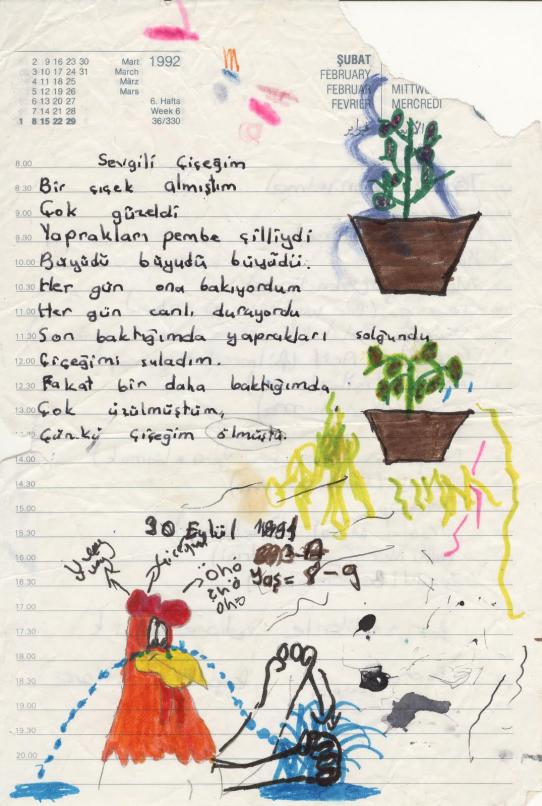 2 9 16 23 30 Mart 1992
3 10 17 24 31 March
4 11 18 25 März
5 12 19 26 Mars
6 13 20 27 6. Hafta
7 14 21 28 Week 6
1 8 15 22 29 36/330
ŞUBAT
FEBRUARY
FEBRUAR MITTWO
FEVRIER MERCREDI
فبراير
8.00 Sevgili Çiçeğim
8.30 Bir çiçek almıştım
9.00 Çok güzeldi
9.30 Yaprakları pembe çilliydi
10.00 Büyüdü büyüdü büyüdü.
10.30 Her gün ona bakıyordum
11.00 Her gün canlı durayordu
11.30 Son baktığımda yaprakları solgundu
12.00 Çiçeğimi suladım.
12.30 Fakat bir daha baktığımda
13.00 Çok üzülmüştüm,
13.30 Çünkü çiçeğim ölmüştü.
14.00
14.30
15.00
15.30 30 Eylül 1991
16.00 Yaş = 8-9
Çiçeğim
Öhö
öhö
öhö
16.30
17.00
17.30
18.00
18.30
19.00
19.30
20.00